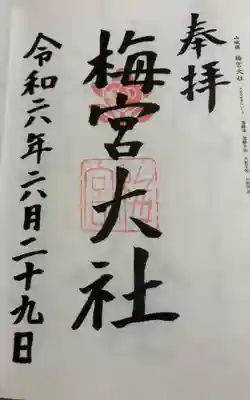 奉拝
梅宮大社
令和六年六月二十九日
山城国 梅宮大社
梅宮